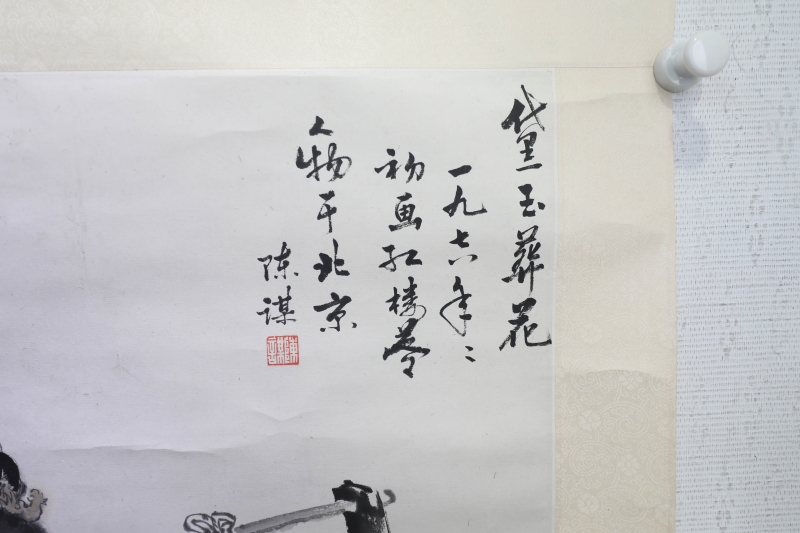 黛玉葬花
一九七六年
初画红楼夢
人物于北京
陈谋